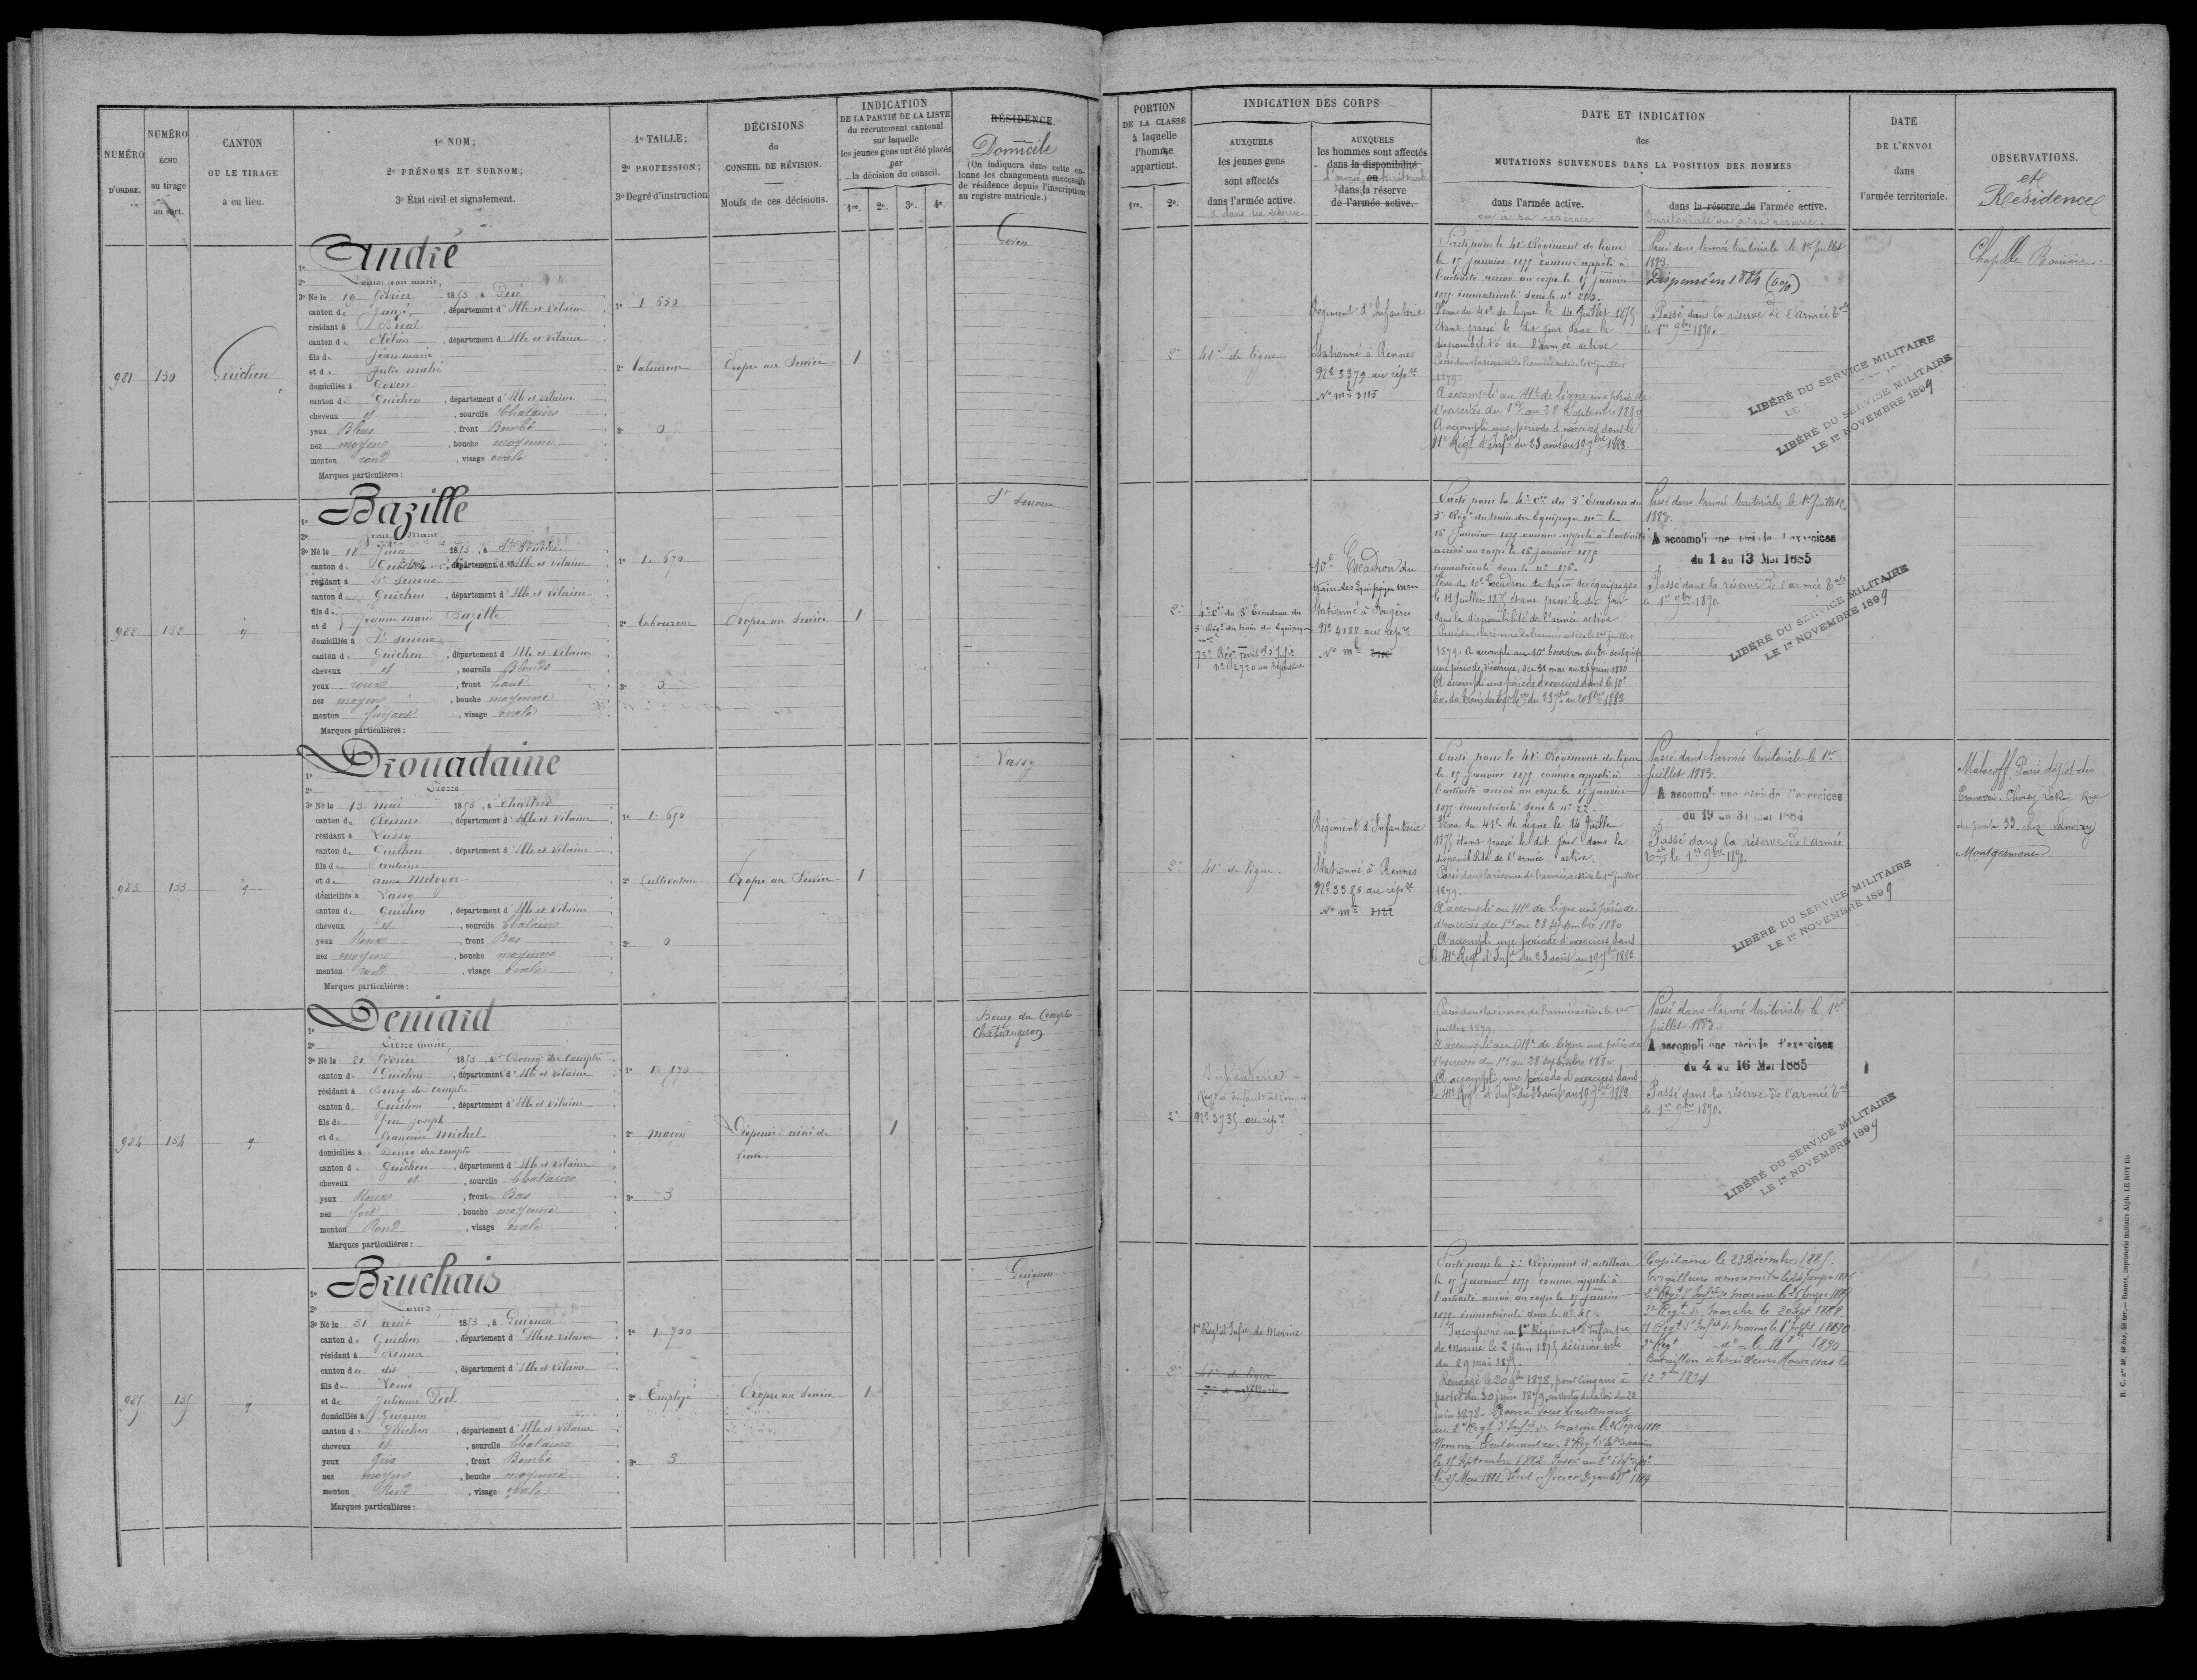 NUMÉRO
D'ORDRE.
NUMÉRO
ÉCHU
au tirage
au sort.
CANTON
OU LE TIRAGE
a eu lieu.
1º NOM;
2º PRÉNOMS ET SURNOM;
3º État civil et signalement.
1º TAILLE;
2º PROFESSION;
3º Degré d'instruction
DÉCISIONS
du
CONSEIL DE RÉVISION.
Motifs de ces décisions.
INDICATION
DE LA PARTIE DE LA LISTE
du recrutement cantonal
sur laquelle
les jeunes gens ont été placés
par
la décision du conseil.
1re. 2e. 3e. 4e.
RÉSIDENCE
Domicile
(On indiquera dans cette co-
lonne les changements successifs
de résidence depuis l'inscription
au registre matricule.)
PORTION
DE LA CLASSE
à laquelle
l'homme
appartient.
1re. 2e.
INDICATION DES CORPS
AUXQUELS
les jeunes gens
sont affectés
dans l'armée active.
& dans sa réserve
AUXQUELS
les hommes sont affectés
dans la disponibilité
ou
dans la réserve
de l'armée active.
DATE ET INDICATION
des
MUTATIONS SURVENUES DANS LA POSITION DES HOMMES
dans l'armée active.
ou à sa réserve
dans la réserve de l'armée active.
Territoriale ou à sa réserve.
DATE
DE L'ENVOI
dans
l'armée territoriale.
OBSERVATIONS.
et
Résidence
981
130
Guichen
André
3º Né le 19 février 1853, à
canton de Janzé, département d'Ille et Vilaine
résidant à Bréal
canton de Plélan, département d'Ille et Vilaine
fils de Jean marie
et de Julie mahé
domiciliés à Goven
canton de Guichen, département d'Ille et Vilaine
cheveux et, sourcils Chatains
yeux Bleus, front Bombé
nez moyen, bouche moyenne
menton rond, visage ovale
Marques particulières :
1º 1. 650
2º Laboureur
3º 0
Propre au Service
1
Goven
2e
41e de ligne
Régiment d'Infanterie
Stationné à Rennes
Nº 3379 au rép.re
Nº m.le 3115
Parti pour le 41e Régiment de ligne
le 15 Janvier 1875 comme appelé à
l'activité arrivé au corps le 15 janvier
1875 immatriculé sous le nº
Venu du 41e de ligne le 14 Juillet 1875
étant passé le dit jour dans la
disponibilité de l'armée active
Passé dans la réserve de l'armée active le 1er juillet
1879.
A accompli au 41e de Ligne une période
d'exercices du 1er au 28 Septembre 1880
A accompli une période d'exercices dans le
41e Régt d'Infie du 23 août au 19 7bre 1882
Passé dans l'armée territoriale le 1er Juillet
1883.
Dispensé en 1884 (6%)
Passé dans la réserve de l'armée t.ale
le 1er 9bre 1890.
LIBÉRÉ DU SERVICE MILITAIRE
LIBÉRÉ DU SERVICE MILITAIRE
LE 1er NOVEMBRE 1899
Chapelle Bouëxic.
982
132
Bazille
Jean Marie
3º Né le 18 Juin 1853, à St Senoux
canton de Guichen, département d'Ille et Vilaine
résidant à St Senoux
canton de Guichen, département d'Ille et Vilaine
fils de
et de Jeanne marie Bazille
domiciliés à St Senoux
canton de Guichen, département d'Ille et Vilaine
cheveux et, sourcils Blonds
yeux roux, front haut
nez moyen, bouche moyenne
menton fuyant, visage ovale
Marques particulières :
1º 1. 670
2º Laboureur
3º 3
Propre au Service
1
St Senoux
2e
4e Cie du 3e Escadron du
3e Régt du train des Equipages
75e Régt territ.al d'Infie
nº 2720 au Répertoire
10e Escadron du
train des Equipages mres
Stationné à Fougères
Nº 4188 au rép.re
Nº m.le
Parti pour la 4e Cie du 3e Escadron du
3e Régt du train des Equipages mres le
16 Janvier 1875 comme appelé à l'activité
arrivé au corps le 16 janvier 1875
immatriculé sous le nº 176.
Venu du 10e Escadron du train des équipages
le 12 Juillet 1875 étant passé le dit jour
dans la disponibilité de l'armée active.
Passé dans la réserve de l'armée active le 1er juillet
1879. A accompli au 10e Escadron du tr. des Equip.
une période d'exercices, du 31 mai au 26 juin 1880
A accompli une période d'exercices dans le 10e
Passé dans l'armée territoriale le 1er Juillet
1883.
A accompli une période d'exercices
du 1 au 13 Mai 1885
Passé dans la réserve de l'armée t.ale
le 1er 9bre 1890.
LIBÉRÉ DU SERVICE MILITAIRE
LE 1er NOVEMBRE 1899
983
133
Drouadaine
Pierre
3º Né le 13 mai 1853, à Chartres
canton de Rennes, département d'Ille et Vilaine
résidant à Lassy
canton de Guichen, département d'Ille et Vilaine
fils de antoine
et de anne Metayer
domiciliés à Lassy
canton de Guichen, département d'Ille et Vilaine
cheveux et, sourcils Chatains
yeux Roux, front Bas
nez moyen, bouche moyenne
menton rond, visage ovale
Marques particulières :
1º 1. 650
2º Cultivateur
3º 0
Propre au Service
1
Lassy
2e
41e de ligne.
Régiment d'Infanterie
Stationné à Rennes
Nº 3386 au rép.re
Nº m.le 3122
Parti pour le 41e Régiment de ligne
le 15 Janvier 1875 comme appelé à
l'activité arrivé au corps le 15 janvier
1875 immatriculé sous le nº 22.
Venu du 41e de Ligne le 14 Juillet
1875 étant passé le dit jour dans la
disponibilité de l'armée active.
Passé dans la réserve de l'armée active le 1er juillet
1879.
A accompli au 41e de Ligne une période
d'exercices du 1er au 28 septembre 1880
A accompli une période d'exercices dans
le 41e Régt d'Infie du 23 août au 19 7bre 1882
Passé dans l'armée territoriale le 1er
Juillet 1883.
A accompli une période d'exercices
du 19 au 31 Mai 1884
Passé dans la réserve de l'armée
t.ale le 1er 9bre 1890.
LIBÉRÉ DU SERVICE MILITAIRE
LE 1er NOVEMBRE 1899
Malacoff Paris dépôt des
Tramways. Choisy le Roi Rue
du pont 33 chez
Montgermont
984
134
Deniard
Pierre marie,
3º Né le 21 février 1853, à Bourg des Comptes
canton de Guichen, département d'Ille et Vilaine
résidant à Bourg des comptes
canton de Guichen, département d'Ille et Vilaine
fils de feu Joseph
et de françoise Michel
domiciliés à Bourg des comptes
canton de Guichen, département d'Ille et Vilaine
cheveux et, sourcils Chatains
yeux Roux, front Bas
nez fort, bouche moyenne
menton Rond, visage ovale
Marques particulières :
2º maçon
3º 3
Dispensé aîné de
veuve
1
Bourg des Comptes
Châteaugiron
2e
Infanterie
Nº 3735 au rép.re
Passé dans la réserve de l'armée active le 1er
juillet 1879.
A accompli au 41e de Ligne une période
d'exercices du 1er au 28 septembre 1880.
A accompli une période d'exercices dans
le 41e Régt d'Infie du 23 août au 19 7bre 1882
Passé dans l'armée territoriale le 1er
Juillet 1883.
A accompli une période d'exercices
du 4 au 16 Mai 1885
Passé dans la réserve de l'armée t.ale
le 1er 9bre 1890.
LIBÉRÉ DU SERVICE MILITAIRE
LE 1er NOVEMBRE 1899
985
135
Bruchais
Louis
3º Né le 31 août 1853, à Guignen
canton de Guichen, département d'Ille et Vilaine
résidant à Rennes
canton de dit, département d'Ille et Vilaine
fils de Louis
et de Julienne Piel
domiciliés à Guignen
canton de Guichen, département d'Ille et Vilaine
cheveux et, sourcils Chatains
yeux Gris, front Bombé
nez moyen, bouche moyenne
menton Rond, visage ovale
Marques particulières :
1º 1. 700
2º Employé
3º 3
Propre au Service
1
Guignen
2e
1er Régt d'Infie de Marine
41e de ligne
7e d'artillerie
Parti pour le 7e Régiment d'artillerie
le 15 Janvier 1875 comme appelé à
l'activité arrivé au corps le 15 janvier
1875 immatriculé sous le nº
Incorporé au 1er Régiment d'Infanterie
de marine le 2 juin 1875 décision mlle
du 29 mai 1875.
Rengagé le 20 9bre 1878, pour cinq ans à
partir du 30 juin 1879, en vertu de la loi du 22
juin 1878. Promu sous lieutenant
au 2e Régt d'Infie de marine le
Nommé Lieutenant au 3e Régt
le 15 Septembre 1882
Capitaine le 23 Décembre 1885.
Tirailleurs annamites le
3e Régt de marche le 20 Sept 1888
Bataillon de tirailleurs Haoussas le
12 9bre 1894
R. C. nos 46, 48 bis, 48 ter. — Rennes, imprimerie militaire Alph. LE ROY fils